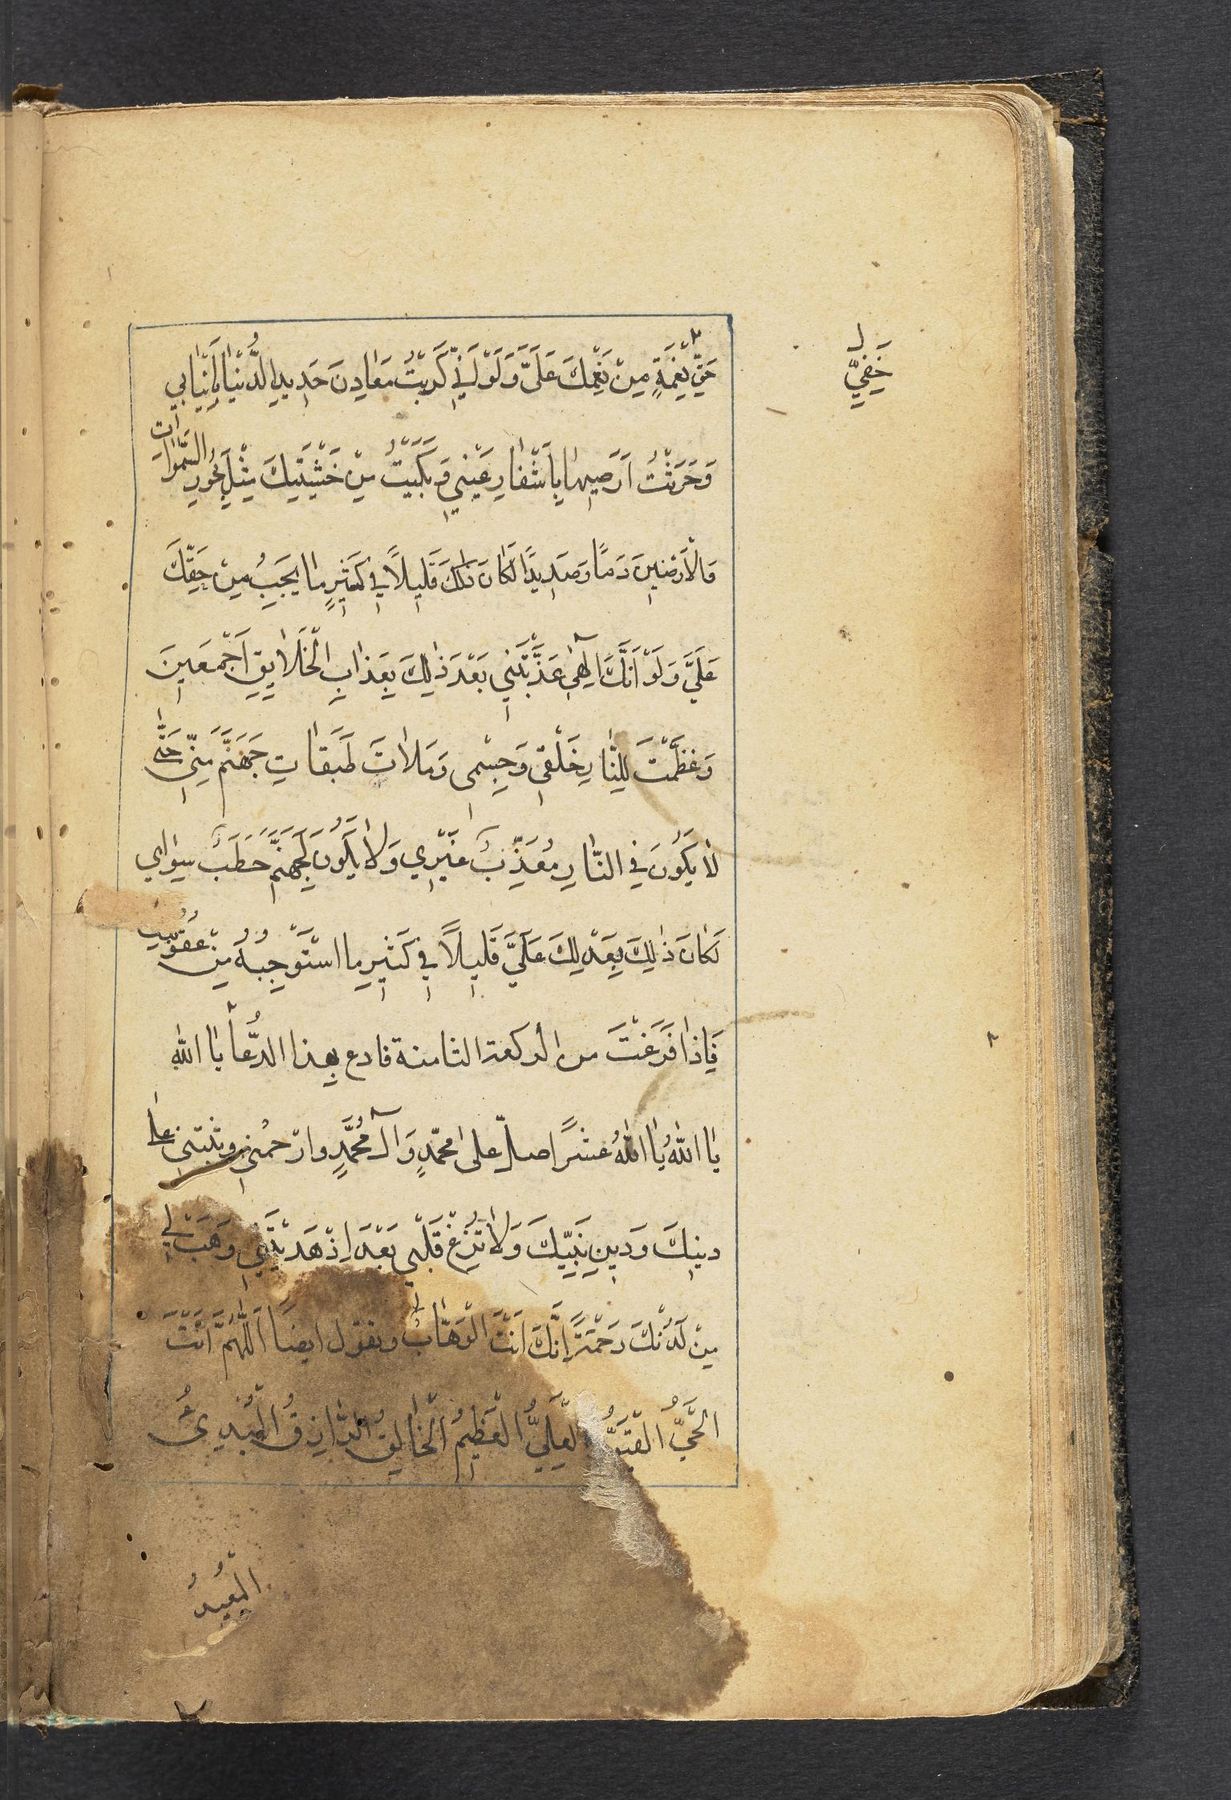 خَفِيِّ ل
حَقِّ نِعْمَةٍ مِنْ نِعَمِكَ عَلَيَّ وَلَوْ اَنِّي كَرَبْتُ مَعَادِنَ حَدِيدِ الدُّنْيَا بِاَنْيَابِي
وَحَرَثْتُ اَرَضِيهَا بِاَشْفَارِ عَيْنِي وَبَكَيْتُ مِنْ خَشْيَتِكَ مِثْلَ بُحُورِ السَّمٰوَاتِ
وَالْاَرَضِينَ دَمًا وَصَدِيدًا لَكَانَ ذٰلِكَ قَلِيلًا فِي كَثِيرِ مَا يَجِبُ مِنْ حَقِّكَ
عَلَيَّ وَلَوْ اَنَّكَ اِلٰهِي عَذَّبْتَنِي بَعْدَ ذٰلِكَ بِعَذَابِ الْخَلَايِقِ اَجْمَعِينَ
وَعَظَّمْتَ لِلنَّارِ خَلْقِي وَجِسْمِي وَمَلَاْتَ طَبَقَاتِ جَهَنَّمَ مِنِّي حَتّٰى
لَا يَكُونَ فِي النَّارِ مُعَذَّبٌ غَيْرِي وَلَا يَكُونَ لِجَهَنَّمَ حَطَبٌ سِوَايَ
لَكَانَ ذٰلِكَ بِعَدْلِكَ عَلَيَّ قَلِيلًا فِي كَثِيرِ مَا اسْتَوْجَبْهُ مِنْ عُقُوبَتِكَ
فَاِذَا فَرَغْتَ من الركعة الثامنة فادع بهذا الدُّعَاْ يَا اللّٰهُ
يَا اللّٰهُ يَا اللّٰهُ عَشْرًا صلّ على محمّدٍ وَآل مُحَمَّدٍ وارْحَمْنِي وثبتني على
دِينِكَ وَدِينِ نَبِيِّكَ وَلَا تُزِغْ قَلْبِي بَعْدَ اِذْ هَدَيْتَنِي وَهَبْ لِي
مِنْ لَدُنْكَ رَحْمَةً اِنَّكَ اَنْتَ الْوَهَّابُ وتقول ايضًا اَللّٰهُمَّ اَنْتَ
الْحَيُّ الْقَيُّومُ الْعَلِيُّ الْعَظِيمُ الْخَالِقُ الرَّازِقُ الْمُبْدِئُ
الْمُعِيدُ